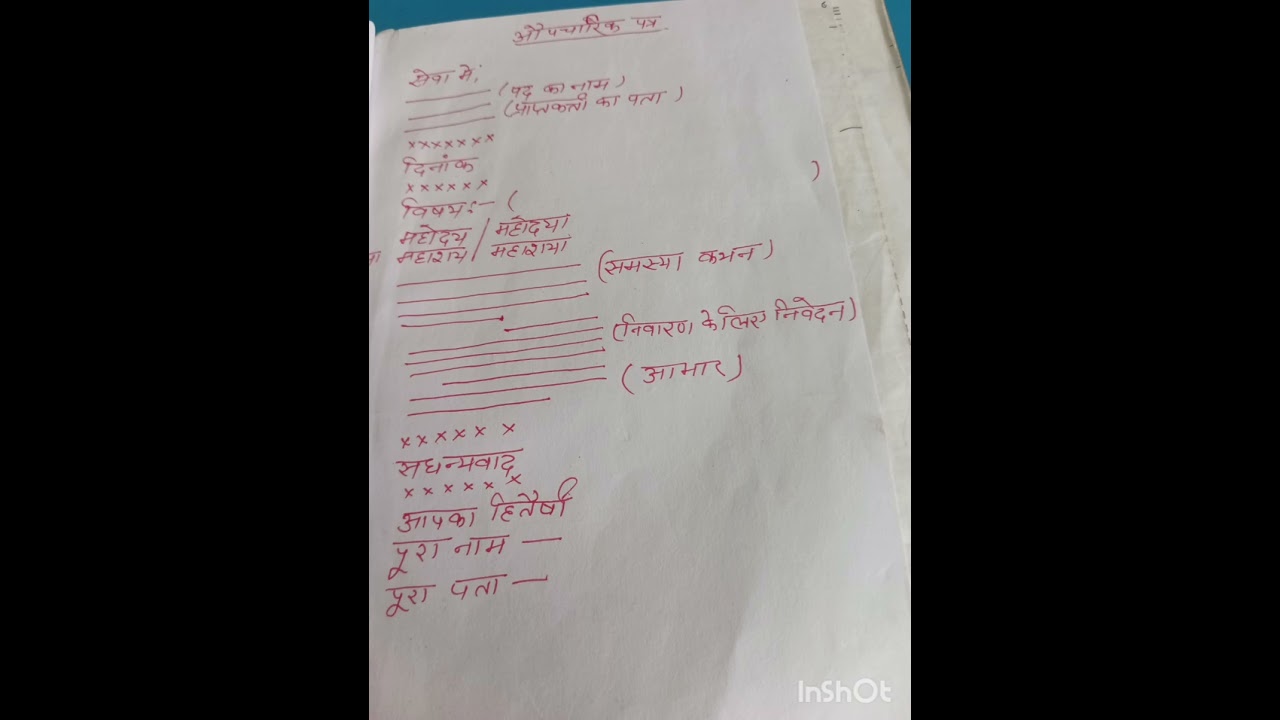 औपचारिक पत्र
सेवा में,
(पद का नाम)
(प्राप्तकर्ता का पता)
×××××××
दिनांक
××××××
विषय:- ( )
महोदय / महोदया
महाशय / महाशया
(समस्या कथन)
(निवारण के लिए निवेदन)
(आभार)
××××××
सधन्यवाद
××××××
आपका हितैषी
पूरा नाम —
पूरा पता —
InShOt